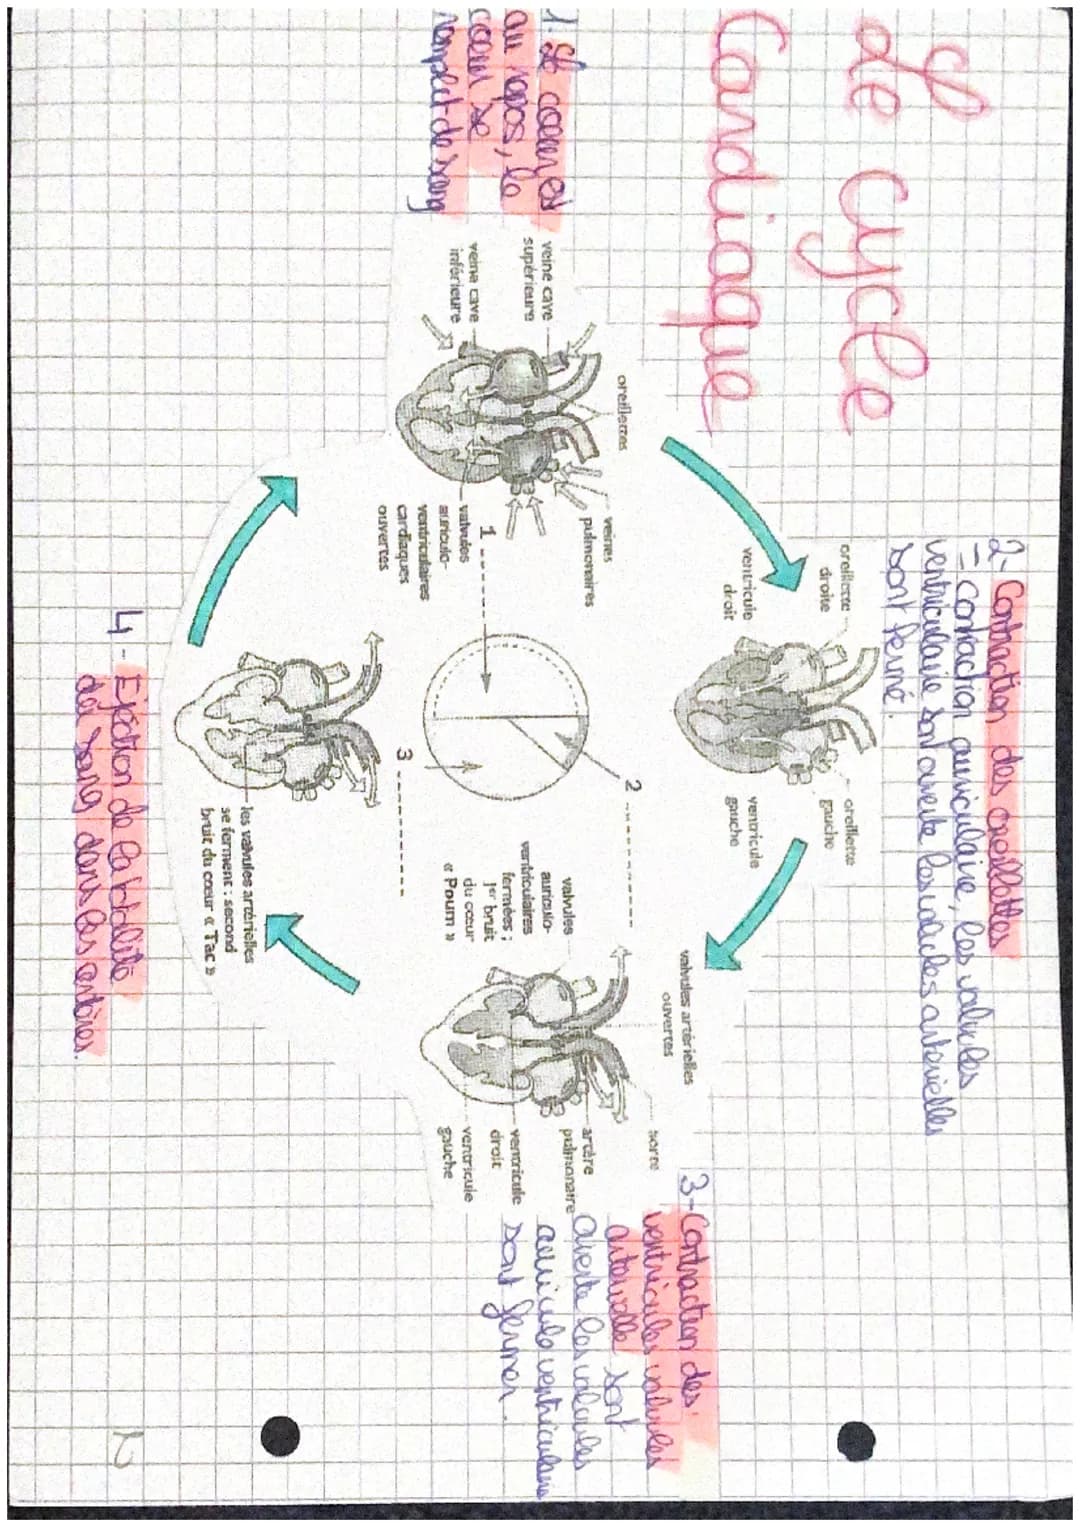 Le cycle
Cardiaque
1- Le coeur est
au repos, le
coeur se
remplit de sang
2- Contraction des oreillettes
= contraction auriculaire, les valvules
ventriculaire sont ouverte les valvules arterielles
sont fermé.
3- Contraction des
ventricules valvules
arterielle sont
ouverte les valvules
auriculo ventriculaire
sont fermer.
4- Ejection de la totalité
du sang dans les artères.
veine cave
supérieure
veine cave
inférieure
oreillettes
veines
pulmonaires
1
valvules
auriculo-
ventriculaires
cardiaques
ouvertes
oreillette
droite
ventricule
droit
oreillette
gauche
ventricule
gauche
2
valvules
auriculo-
ventriculaires
fermées ;
1er bruit
du cœur
« Poum »
valvules artérielles
ouvertes
aorte
artère
pulmonaire
ventricule
droit
ventricule
gauche
3
les valvules artérielles
se ferment : second
bruit du cœur « Tac »